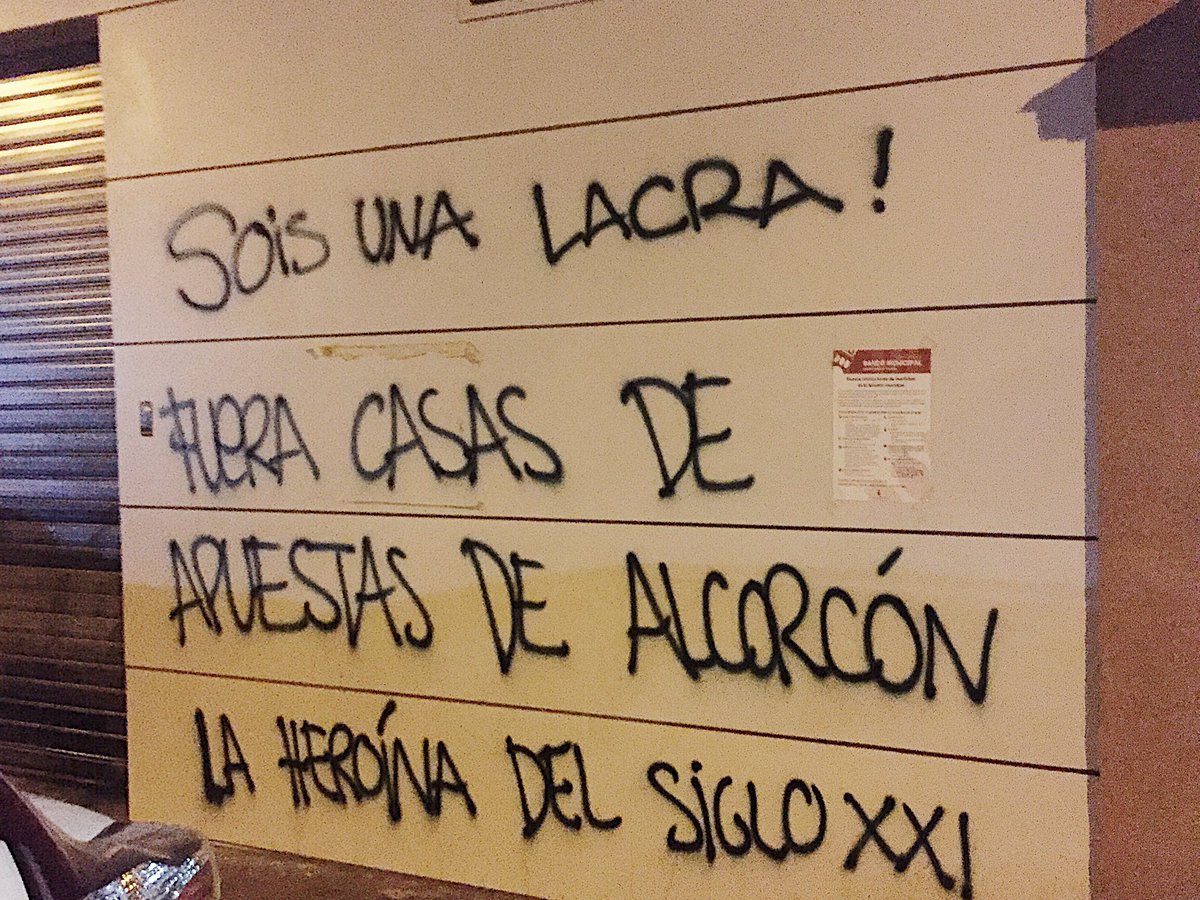 SOiS UNA LACRA!
FUERA CASAS DE
BANDO MUNICIPAL
APUESTAS DE ALCORCÓN
LA HEROÍNA DEL SiGLO XXI